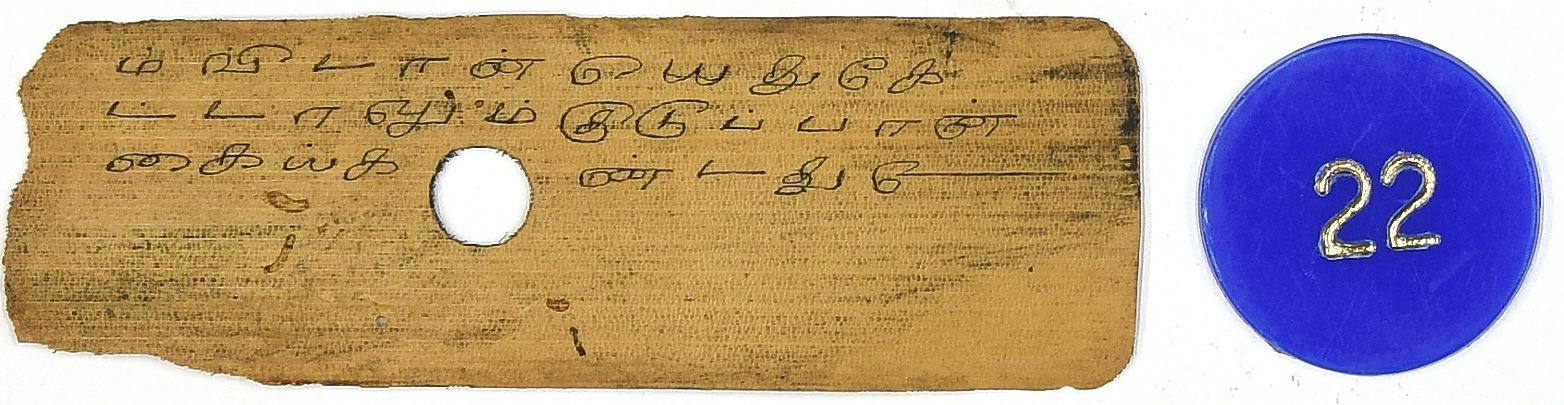 ம் விடான் யெதுகே
ட்டாலும் குடுப்பான்
கைய்க ண்டது
22